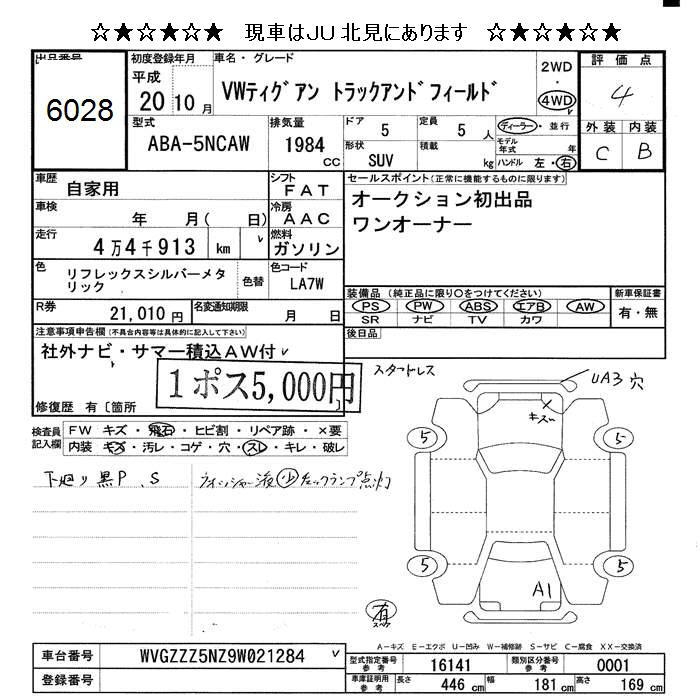 ☆★☆★☆★ 現車はJU北見にあります ☆★☆★☆★
出品番号
6028
初度登録年月
平成
20 10 月
車名・グレード
VWティグアン トラックアンドフィールド
2WD
・
4WD
評価点
4
外装 内装
C B
型式
ABA-5NCAW
排気量
1984
CC
ドア
5
定員
5 人
形状
SUV
積載
kg
ディーラー・並行
モデル年式 年
ハンドル 左・右
車歴
自家用
シフト
FAT
車検
年 月( 日)
冷房
AAC
走行
4万4千913 km
燃料
ガソリン
色
リフレックスシルバーメタリック
色替
色コード
LA7W
R券
21,010 円
名変通知期限
月 日
セールスポイント(正常に機能するものに限ります)
オークション初出品
ワンオーナー
装備品(純正品に限り○をつけてください)
PS PW ABS エアB AW
SR ナビ TV カワ
新車保証書
有・無
後日品
注意事項申告欄(不具合内容等は具体的に記入して下さい)
社外ナビ・サマー積込AW付
1ポス5,000円
修復歴 有〔箇所 〕
検査員記入欄
FW キズ・飛石・ヒビ割・リペア跡・×要
内装 キズ・汚レ・コゲ・穴・スレ・キレ・破レ
スタットレス
UA3 穴
キズ
5 5
5 5
A1
下廻り黒P、S
ウィンシャー液 少 左バックランプ点灯
有
A-キズ E-エクボ U-凹み W-補修跡 S-サビ C-腐食 XX-交換済
車台番号
WVGZZZ5NZ9W021284
登録番号
型式指定番号 参考
16141
類別区分番号 参考
0001
車庫証明用 参考
長さ 446 cm 幅 181 cm 高さ 169 cm